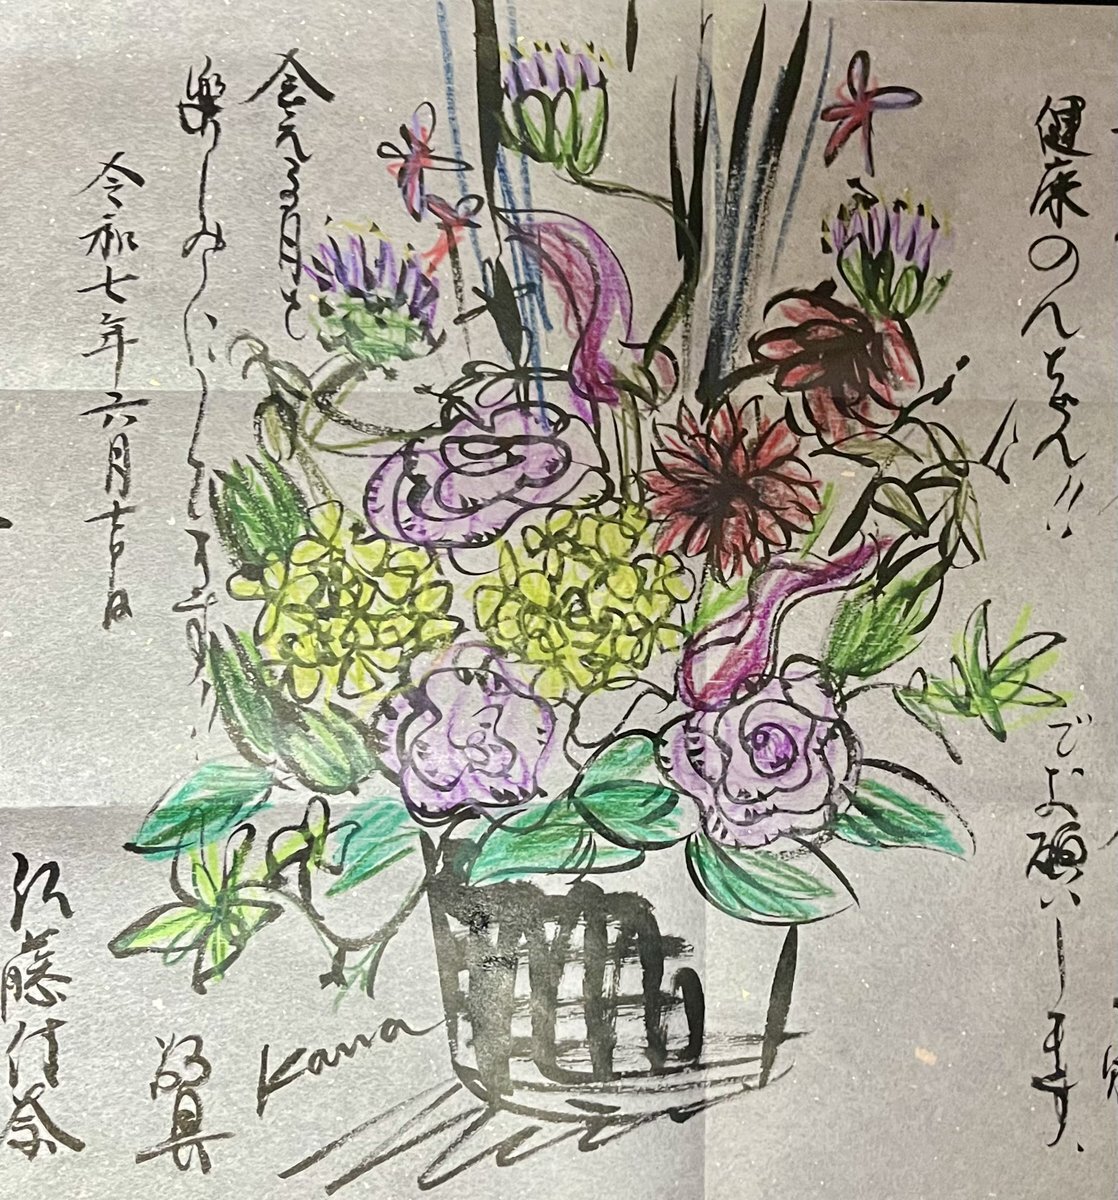 健康のんちゃん!!
でお願いします、
会える日を
楽しみにします
令和七年六月十日
敬具
佐藤佳奈
Kana